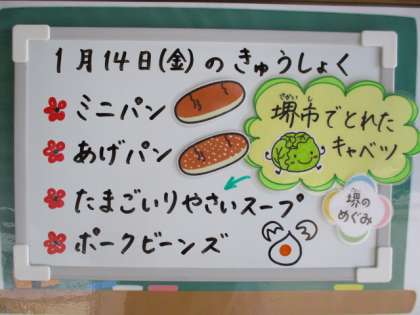 1月14日(金)のきゅうしょく
ミニパン
あげパン
たまごいりやさいスープ
ポークビーンズ
堺市でとれた
キャベツ
堺の
めぐみ